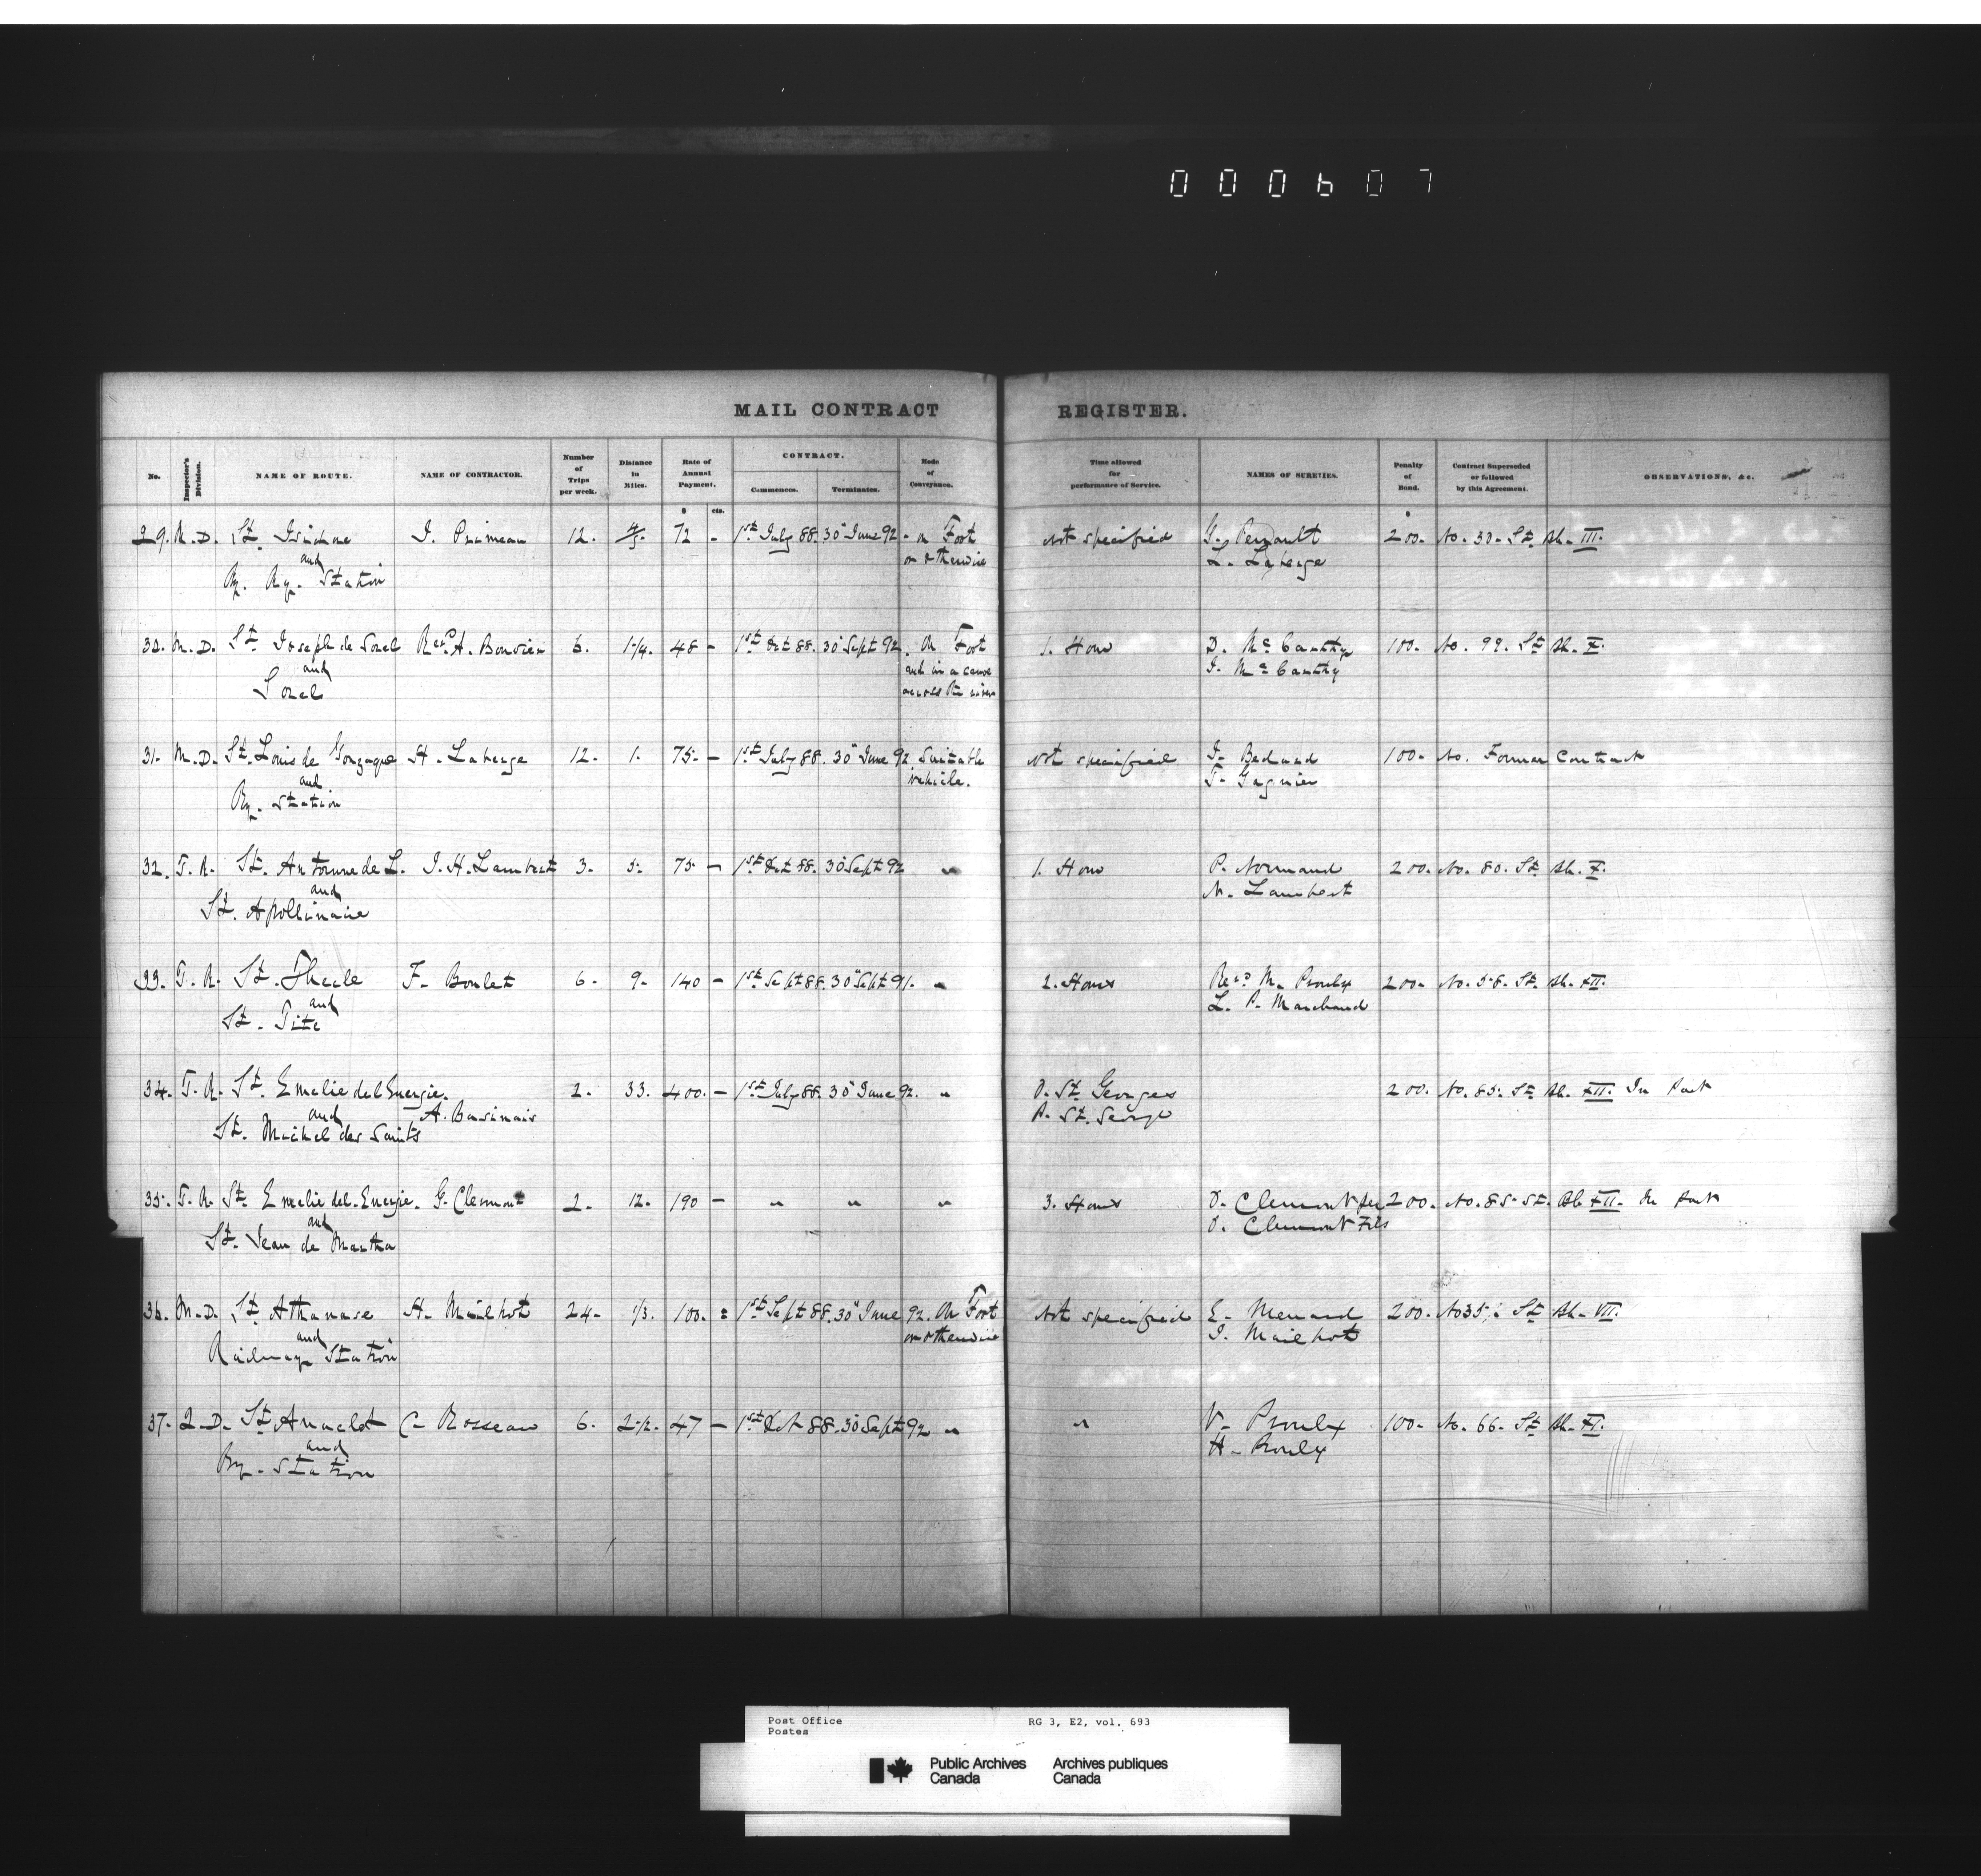 000607
MAIL CONTRACT REGISTER.
No. Inspector's Division. NAME OF ROUTE. NAME OF CONTRACTOR. Number of Trips per week. Distance in Miles. Rate of Annual Payment. CONTRACT. Commences. Terminates. Mode of Conveyance. Time allowed for performance of Service. NAMES OF SURETIES. Penalty of Bond. Contract Superseded or followed by this Agreement. OBSERVATIONS, &c.
$ cts. $
29. M. D. St. Isidore J. Primeau 12. 4/5. 72 - 1st July 88. 30" June 92 - on Foot Not specified G. Perrault 200. No. 30. St. Sh. III.
and or otherwise L. Laberge
Ry. Station
30. M. D. St. Joseph de Sorel Revd A. Bouvier 6. 1 1/4. 48 - 1st Oct 88. 30" Sept 92. On Foot 1. Hour D. McCarthy 100. No. 99. St. Sh. X.
and and in a canoe J. McCarthy
Sorel across the river
31. M. D. St. Louis de Gonzague H. Laberge 12. 1. 75. - 1st July 88. 30" June 92 Suitable Not specified J. Bedard 100. No. Former Contract
and vehicle. T. Gagnier
Ry. Station
32. T. R. St. Antoine de L. J. H. Lambert 3. 5. 75 - 1st Oct 88. 30 Sept 92 " 1. Hour P. Normand 200. No. 80. St. Sh. X.
and N. Lambert
St. Apollinaire
33. T. R. St. Thecle F. Boulet 6. 9. 140 - 1st Sept 88. 30" Sept 91. " 2. Hours Revd M. Proulx 200. No. 58. St. Sh. XII.
and L. P. Marchand
St. Tite
34. T. R. St. Emelie del Energie. 2. 33. 400. - 1st July 88. 30" June 92. " O. St. Georges 200. No. 85. St. Sh. XII. In Part
and A. P. St. George
St. Michel des Saints
35. T. R. St. Emelie del. Energie. G. Clermont 2. 12. 190 - " " " 3. Hours O. Clermont 200. No. 85. St. Sh. XII. In Part
and O. Clermont Fils
St. Jean de Martha
36. M. D. St. Athanase H. Mailhot 24. 1/3. 100. = 1st Sept 88. 30" June 92. On Foot Not specified E. Menard 200. No 35, St. Sh. VII.
and or otherwise J. Mailhot
Railway Station
37. Q. D. St. Anaclet C. Rosseau 6. 2 1/2. 47 - 1st Oct 88. 30 Sept 92 " " V. Proulx 100. No. 66. St. Sh. XI.
and H. Proulx
Ry. Station
Post Office RG 3, E2, vol. 693
Postes
Public Archives Archives publiques
Canada Canada